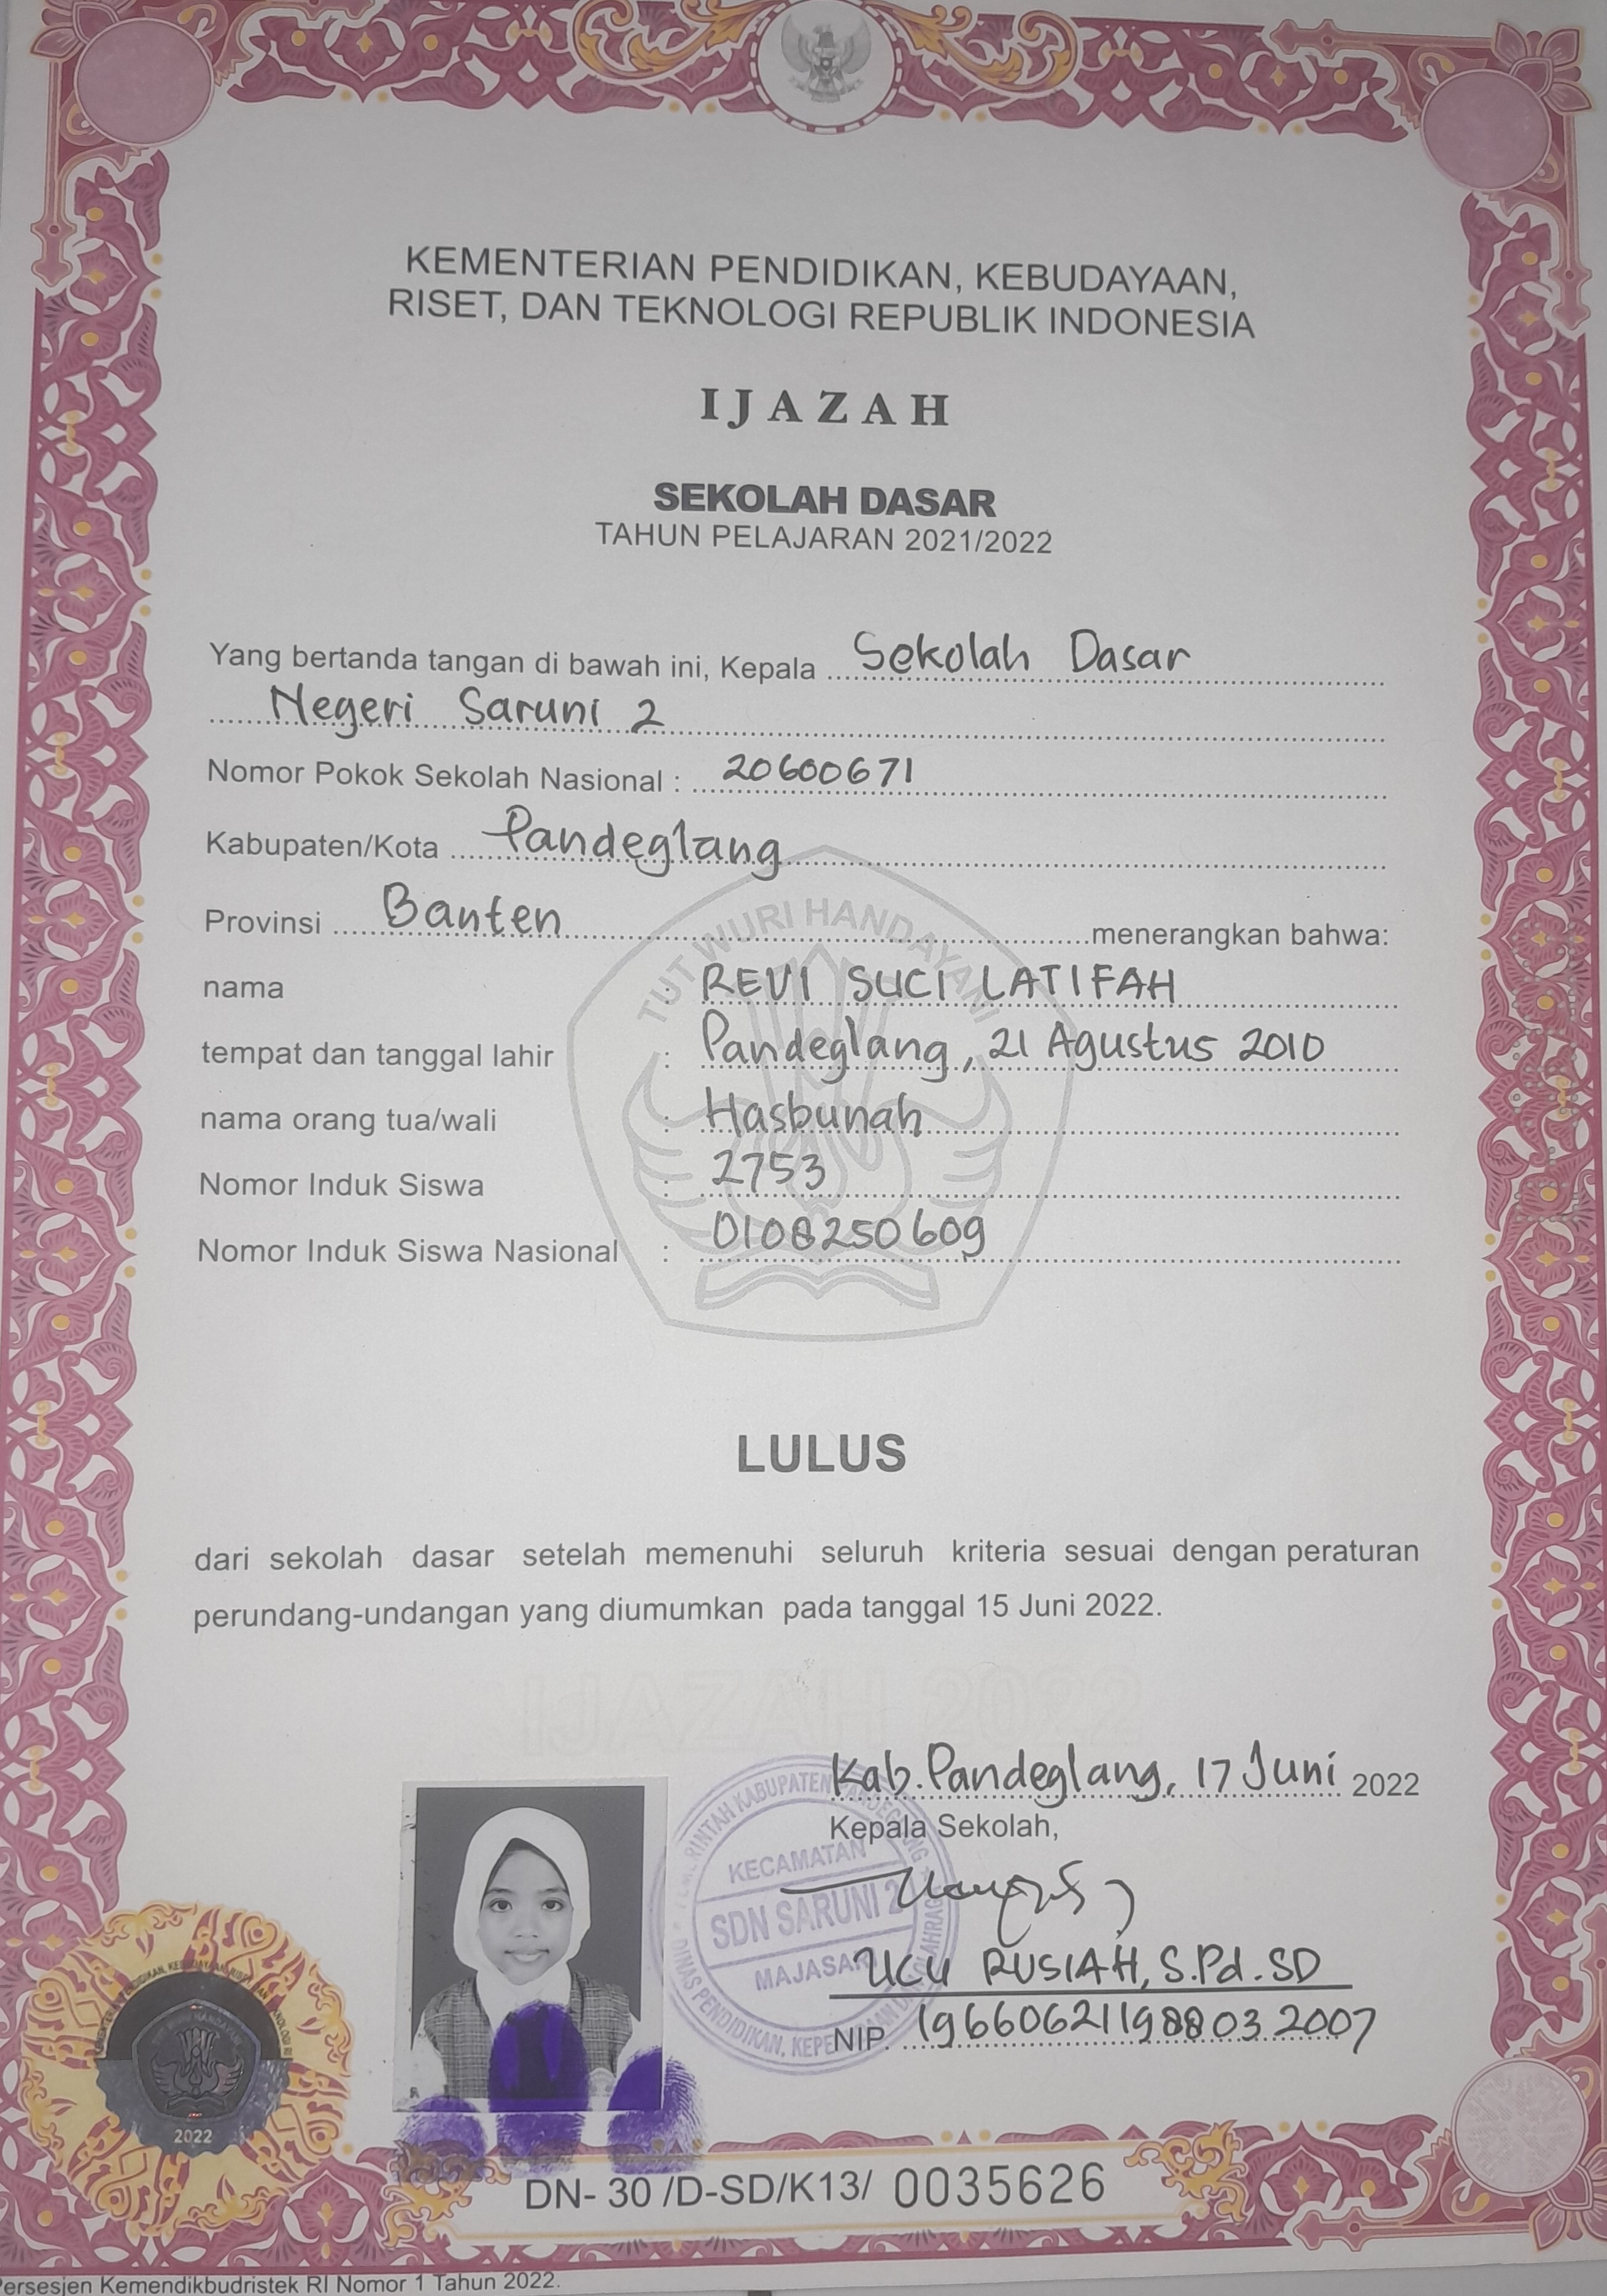 KEMENTERIAN PENDIDIKAN, KEBUDAYAAN,
RISET, DAN TEKNOLOGI REPUBLIK INDONESIA
IJAZAH
SEKOLAH DASAR
TAHUN PELAJARAN 2021/2022
Yang bertanda tangan di bawah ini, Kepala Sekolah Dasar
Negeri Saruni 2
Nomor Pokok Sekolah Nasional : 20600671
Kabupaten/Kota Pandeglang
Provinsi Banten menerangkan bahwa:
TUT WURI HANDAYANI
nama REVI SUCI LATIFAH
tempat dan tanggal lahir : Pandeglang, 21 Agustus 2010
nama orang tua/wali : Hasbunah
Nomor Induk Siswa : 2753
Nomor Induk Siswa Nasional : 0108250609
LULUS
dari sekolah dasar setelah memenuhi seluruh kriteria sesuai dengan peraturan
perundang-undangan yang diumumkan pada tanggal 15 Juni 2022.
IJAZAH 2022
Kab. Pandeglang, 17 Juni 2022
Kepala Sekolah,
KECAMATAN
SDN SARUNI 2
MAJASARI
UCU RUSIAH, S.Pd.SD
NIP. 196606211988032007
2022
DN- 30 /D-SD/K13/ 0035626
Persesjen Kemendikbudristek RI Nomor 1 Tahun 2022.